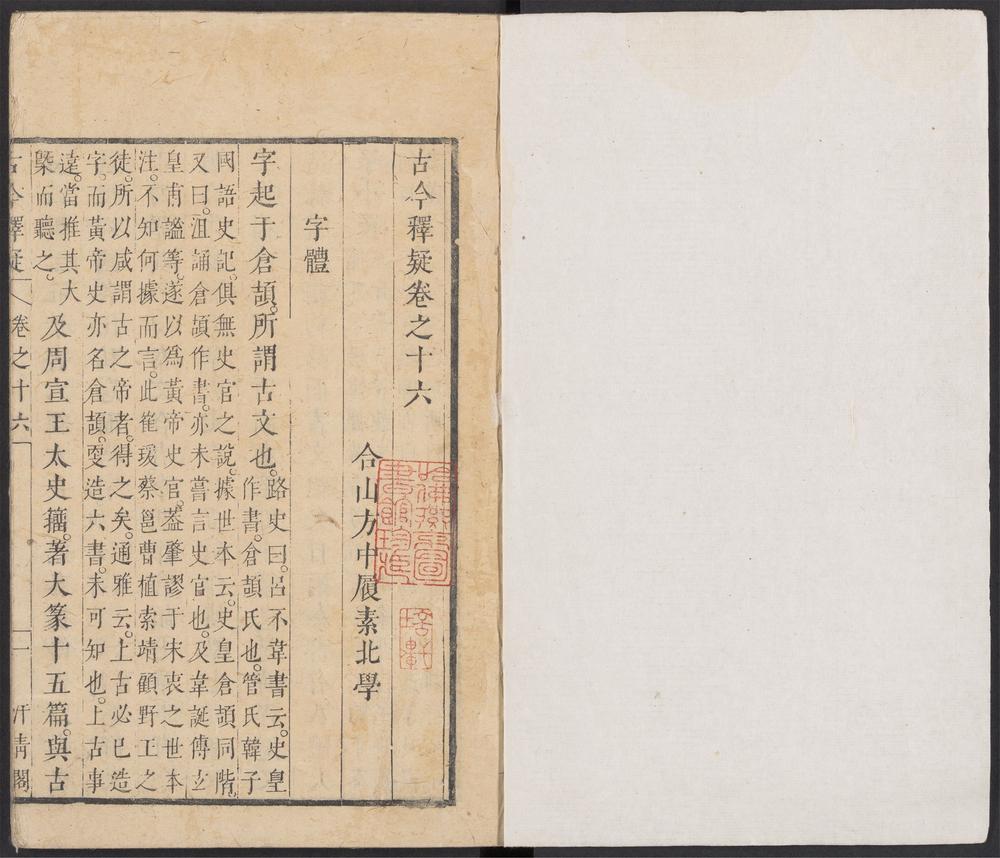 古今釋疑卷之十六
合山方中履素北學
字體
字起于倉頡。所謂古文也。路史曰。呂不韋書云。史皇
作書。倉頡氏也。管氏韓子
國語史記。俱無史官之說。據世本云。史皇倉頡同階。
又曰。沮誦倉頡作書。亦未嘗言史官也。及韋誕傳玄
皇甫謐等。遂以爲黃帝史官。葢肇謬于宋衷之世本
注。不知何據而言。此崔瑗蔡邕曹植索靖顧野王之
徒。所以咸謂古之帝者。得之矣。通雅云。上古必已造
字。而黃帝史亦名倉頡。更造六書。未可知也。上古事
遠。當推其大
槩而聽之。及周宣王太史籒。著大篆十五篇。與古
古今釋疑 卷之十六 一 汗青閣